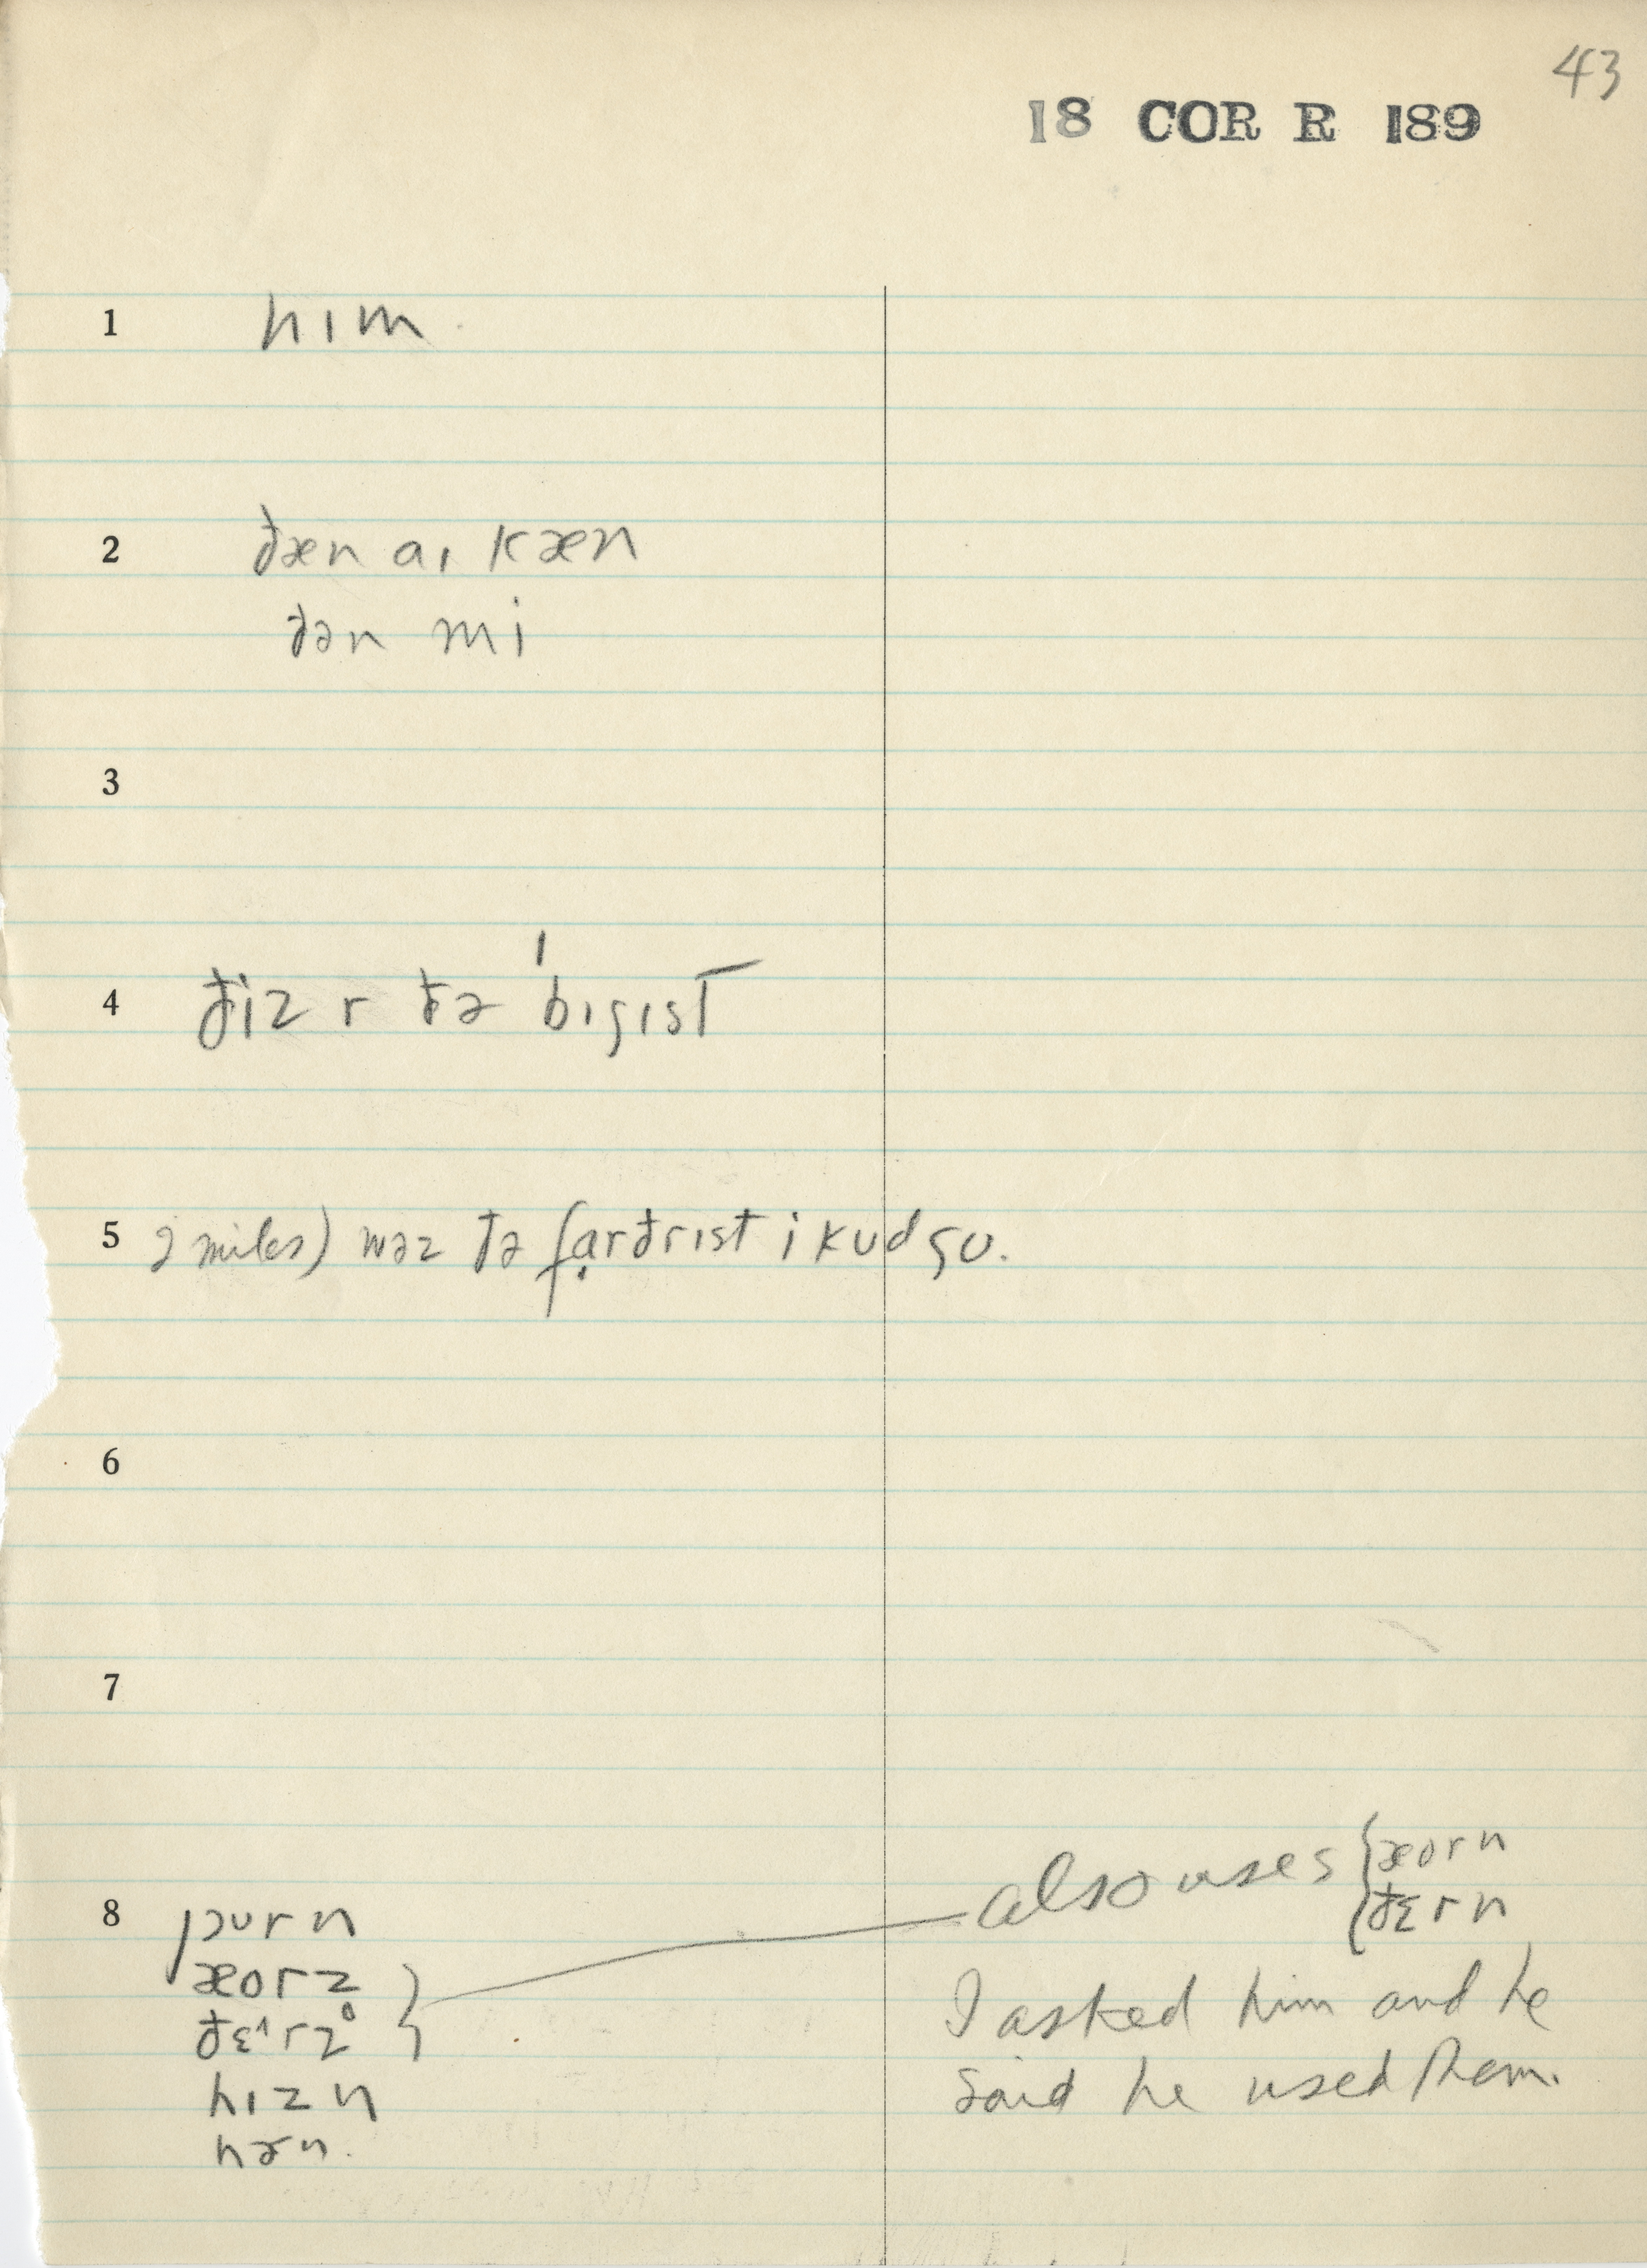 43
18 COR R 189
1 hɪm
2 ðæn aɪ kæn
ðən mi
3
4 ðiz r ðə ˈbɪgɪst
5 2 miles) wəz ðə fạrðrɪst i kʊd gʊ.
6
7
also uses { æorn
ðɛrn
8 jɔʊrn
æorz
ðɛ^rz̥
hɪzn
hɚn.
I asked him and he
said he used them.